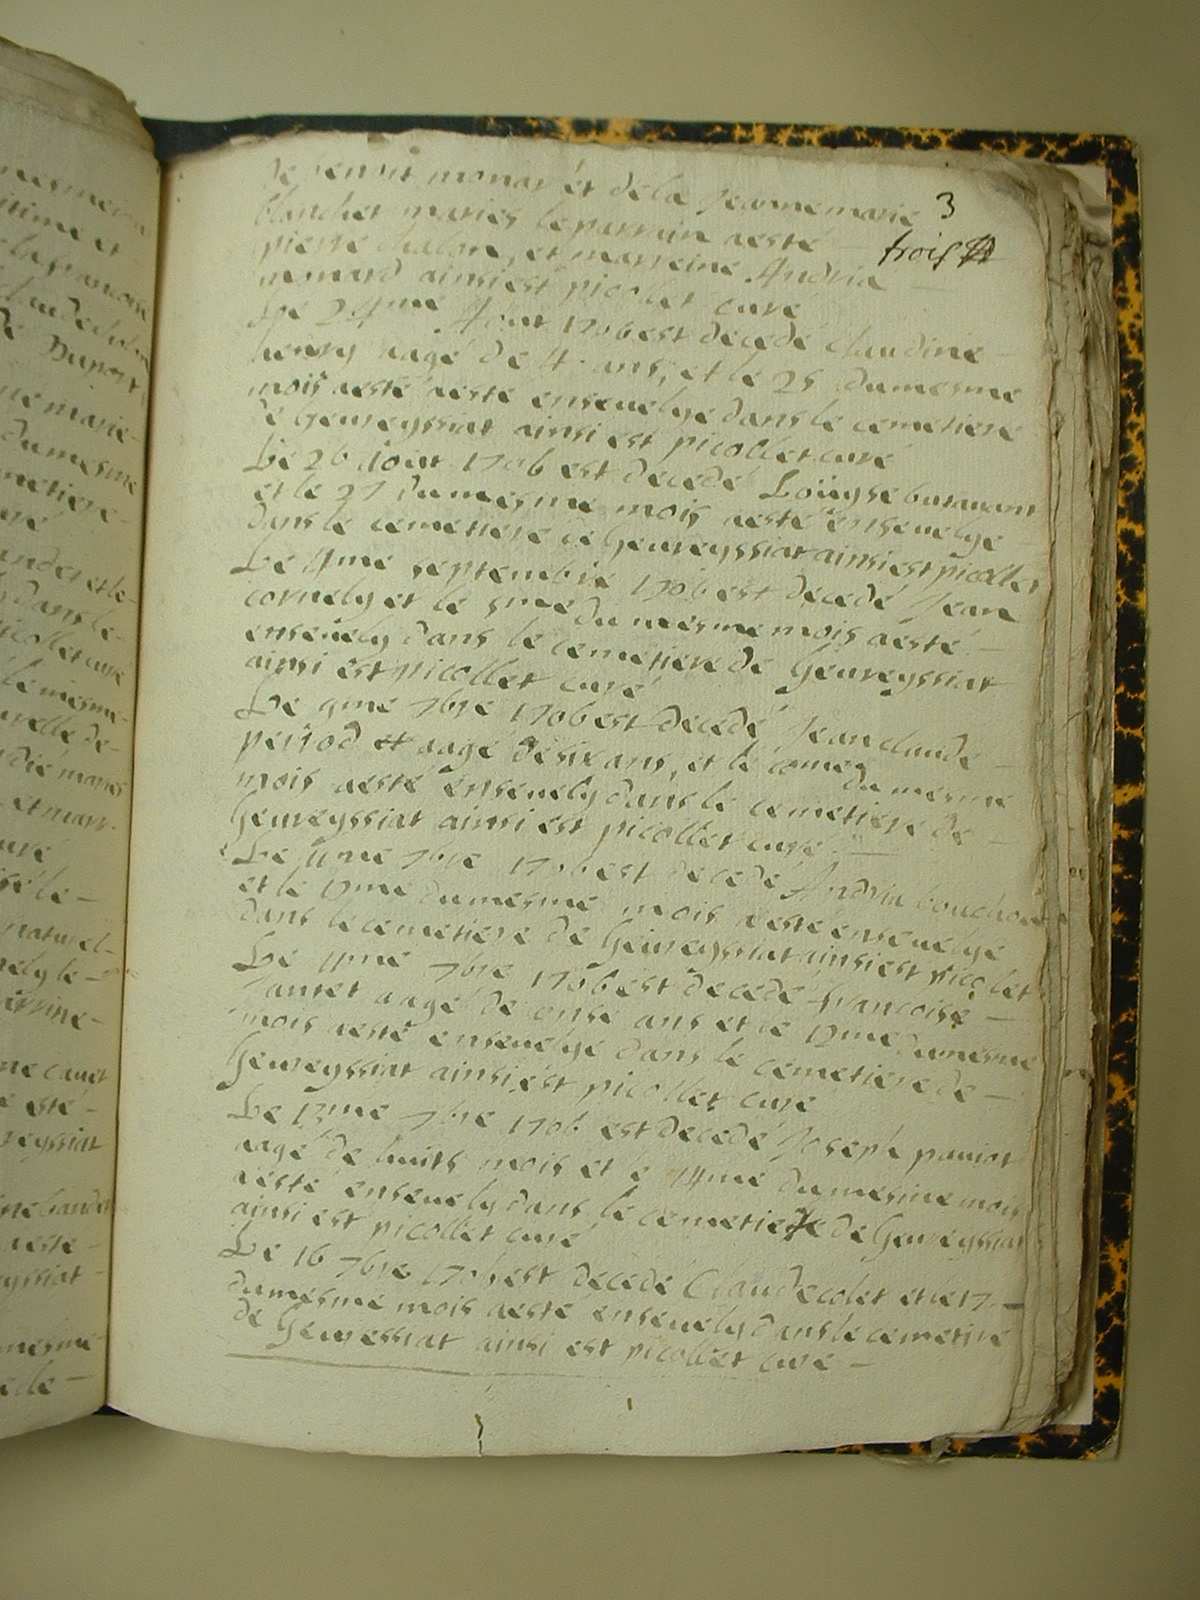 3
trois
de benoit monar et de la Jeanne marie
blanchet mariés le parrain aesté
pierre chalon, et marreine Andria
monard ainsi est picollet curé
Le 24me Aout 1706 est decedé claudine
henry aagé de 4 ans, et le 25 du mesme
mois aesté aesté enseuelye dans le cemetiere
de geureyssiat ainsi est picollet curé
Le 26 Aout 1706 est decedé Loüyse
et le 27 du mesme mois aesté enseuelye
dans le cemetiere de geureyssiat ainsi est picollet
Le 4me septembre 1706 est decedé Jean
cornely et le 5me du mesme mois aesté
enseuely dans le cemetiere de geureyssiat
ainsi est picollet curé
Le 9me 7bre 1706 est decedé Jean claude
perrod aagé de six ans, et le 10me du mesme
mois aesté enseuely dans le cemetiere de
geureyssiat ainsi est picollet curé
Le 11me 7bre 1706 est decedé Andria bouchon
et le 12me du mesme mois aesté enseuelye
dans le cemetiere de geureyssiat ainsi est picollet
Le 11me 7bre 1706 est decedé francoise
Jantet aagé de onse ans et le 12me du mesme
mois aesté enseuelye dans le cemetiere de
geureyssiat ainsi est picollet curé
Le 13me 7bre 1706 est decedé Joseph puuiot
aagé de huits mois et le 14me du mesme mois
aesté enseuely dans le cemetiere de geureyssiat
ainsi est picollet curé
Le 16 7bre 1706 est decedé Claude colet et le 17
du mesme mois aesté enseuely dans le cemetire
de geuressiat ainsi est picollet curé